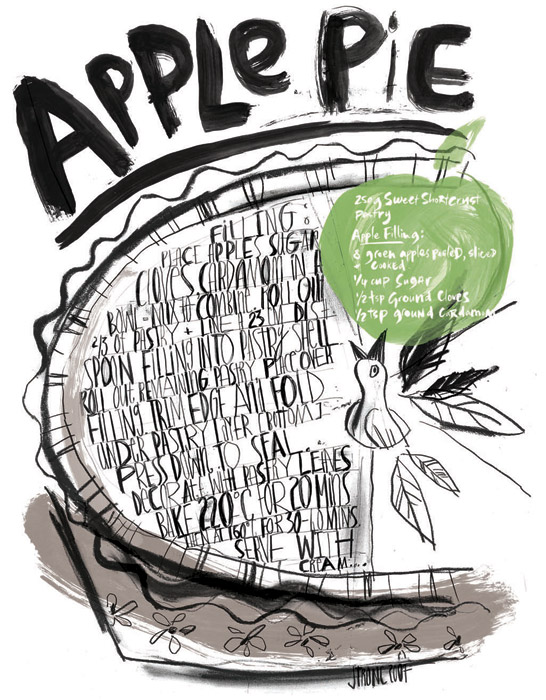 APPLE PIE
250g Sweet Shortcrust
Pastry
Apple Filling:
8 green apples peeled, sliced
+ cooked
1/4 cup Sugar
1/2 tsp Ground Cloves
1/2 tsp ground Cardamom
FILLING:
PLACE APPLES SUGAR
CLOVES CARDAMOM IN A
BOWL - MIX TO COMBINE ROLL OUT
2/3 OF PASTRY + LINE A 23 CM DISH
SPOON FILLING INTO PASTRY SHELL
ROLL OUT REMAINING PASTRY PLACE OVER
FILLING TRIM EDGE AND FOLD
UNDER PASTRY LAYER (BOTTOM)
PRESS DOWN TO SEAL
DECORATE WITH PASTRY LEAVES
BAKE 220°C FOR 20 MINS
THEN AT 160° FOR 30-40 MINS.
SERVE WITH
CREAM....